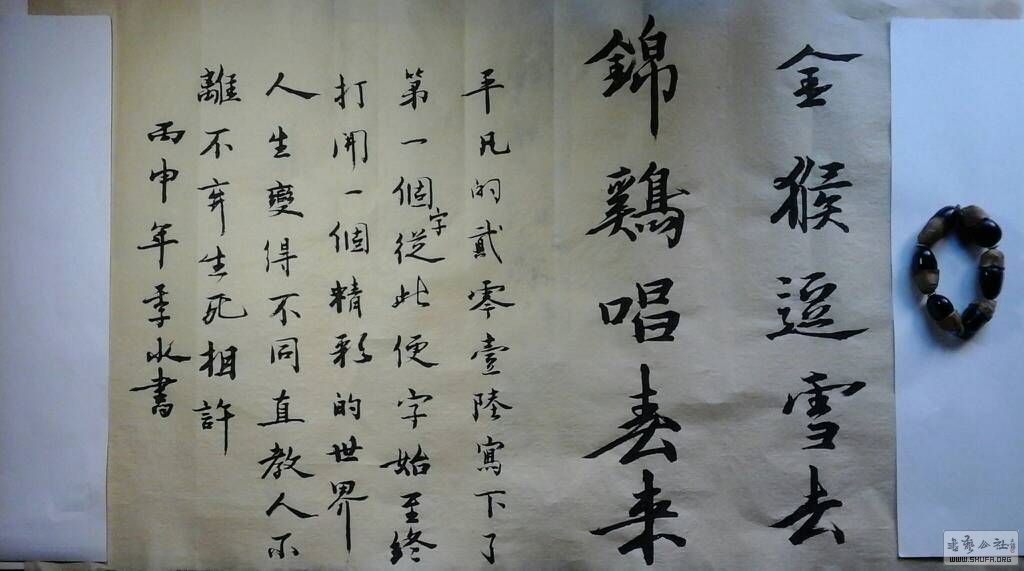 金猴逗雪去
錦鷄唱春来
平凡的貳零壹陸寫下了
第一個字從此便字始至終
打開一個精彩的世界
人生變得不同直教人不
離不弃生死相許
丙申年季水書
書藝公社
WWW.SHUFA.ORG